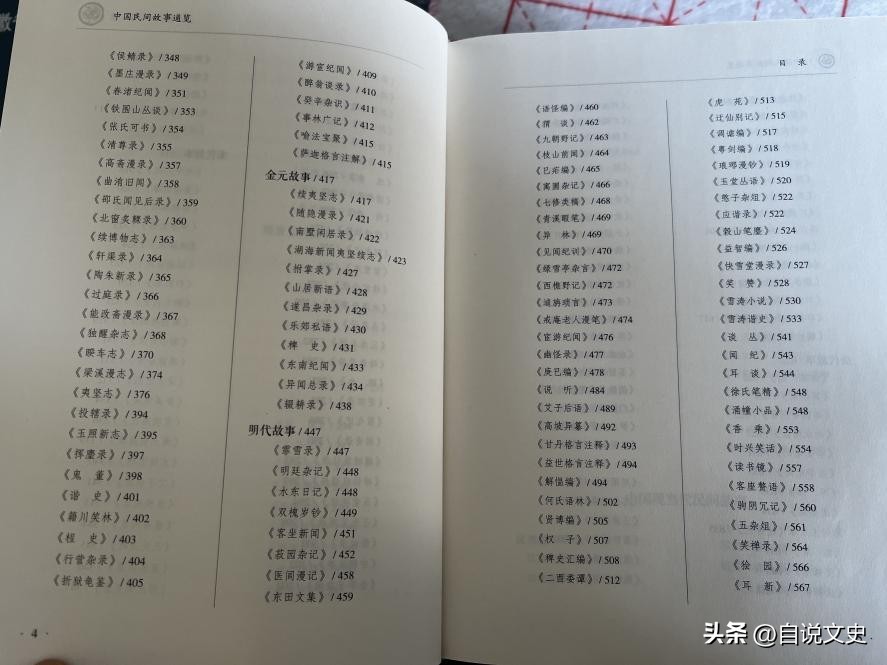 中国民间故事通览
《侯鲭录》/348
《墨庄漫录》/349
《春渚纪闻》/351
《铁围山丛谈》/353
《张氏可书》/354
《清尊录》/355
《高斋漫录》/357
《曲洧旧闻》/358
《邵氏闻见后录》/359
《北窗炙輠录》/360
《续博物志》/363
《轩渠录》/364
《陶朱新录》/365
《过庭录》/366
《能改斋漫录》/367
《独醒杂志》/368
《睽车志》/370
《梁溪漫志》/374
《夷坚志》/376
《投辖录》/394
《玉照新志》/395
《挥麈录》/397
《鬼 董》/398
《谐 史》/401
《籍川笑林》/402
《桯 史》/403
《行营杂录》/404
《折狱龟鉴》/405
《游宦纪闻》/409
《醉翁谈录》/410
《癸辛杂识》/411
《事林广记》/412
《喻法宝聚》/415
《萨迦格言注解》/415
金元故事/417
《续夷坚志》/417
《随隐漫录》/421
《南墅闲居录》/422
《湖海新闻夷坚续志》/423
《拊掌录》/427
《山居新语》/428
《遂昌杂录》/429
《乐郊私语》/430
《稗 史》/431
《东南纪闻》/433
《异闻总录》/434
《辍耕录》/438
明代故事/447
《霏雪录》/447
《明廷杂记》/448
《水东日记》/448
《双槐岁钞》/449
《客坐新闻》/451
《菽园杂记》/452
《医间漫记》/458
《东田文集》/459
· 4 ·
目 录
《语怪编》/460
《猥 谈》/462
《九朝野记》/463
《枝山前闻》/464
《已疟编》/465
《寓圃杂记》/466
《七修类稿》/468
《青溪暇笔》/469
《异 林》/469
《见闻纪训》/470
《绿雪亭杂言》/472
《西樵野记》/472
《逌旃琐言》/473
《戒庵老人漫笔》/474
《宦游纪闻》/476
《幽怪录》/477
《庚巳编》/478
《说 听》/484
《艾子后语》/489
《高坡异纂》/492
《甘丹格言注释》/493
《益世格言注释》/494
《解愠编》/494
《何氏语林》/502
《贤博编》/505
《权 子》/507
《稗史汇编》/508
《二酉委谭》/512
《虎 苑》/513
《迂仙别记》/515
《调谑编》/517
《粤剑编》/518
《琅琊漫钞》/519
《玉堂丛语》/520
《憨子杂俎》/522
《应谐录》/522
《榖山笔麈》/524
《益智编》/526
《快雪堂漫录》/527
《笑 赞》/528
《雪涛小说》/530
《雪涛谐史》/533
《谈 丛》/541
《闻 纪》/543
《耳 谈》/544
《徐氏笔精》/548
《涌幢小品》/548
《香 乘》/553
《时兴笑话》/554
《读书镜》/557
《客座赘语》/558
《驹阴冗记》/560
《五杂俎》/561
《笑禅录》/564
《狯 园》/566
《耳 新》/567
头条 @自说文史